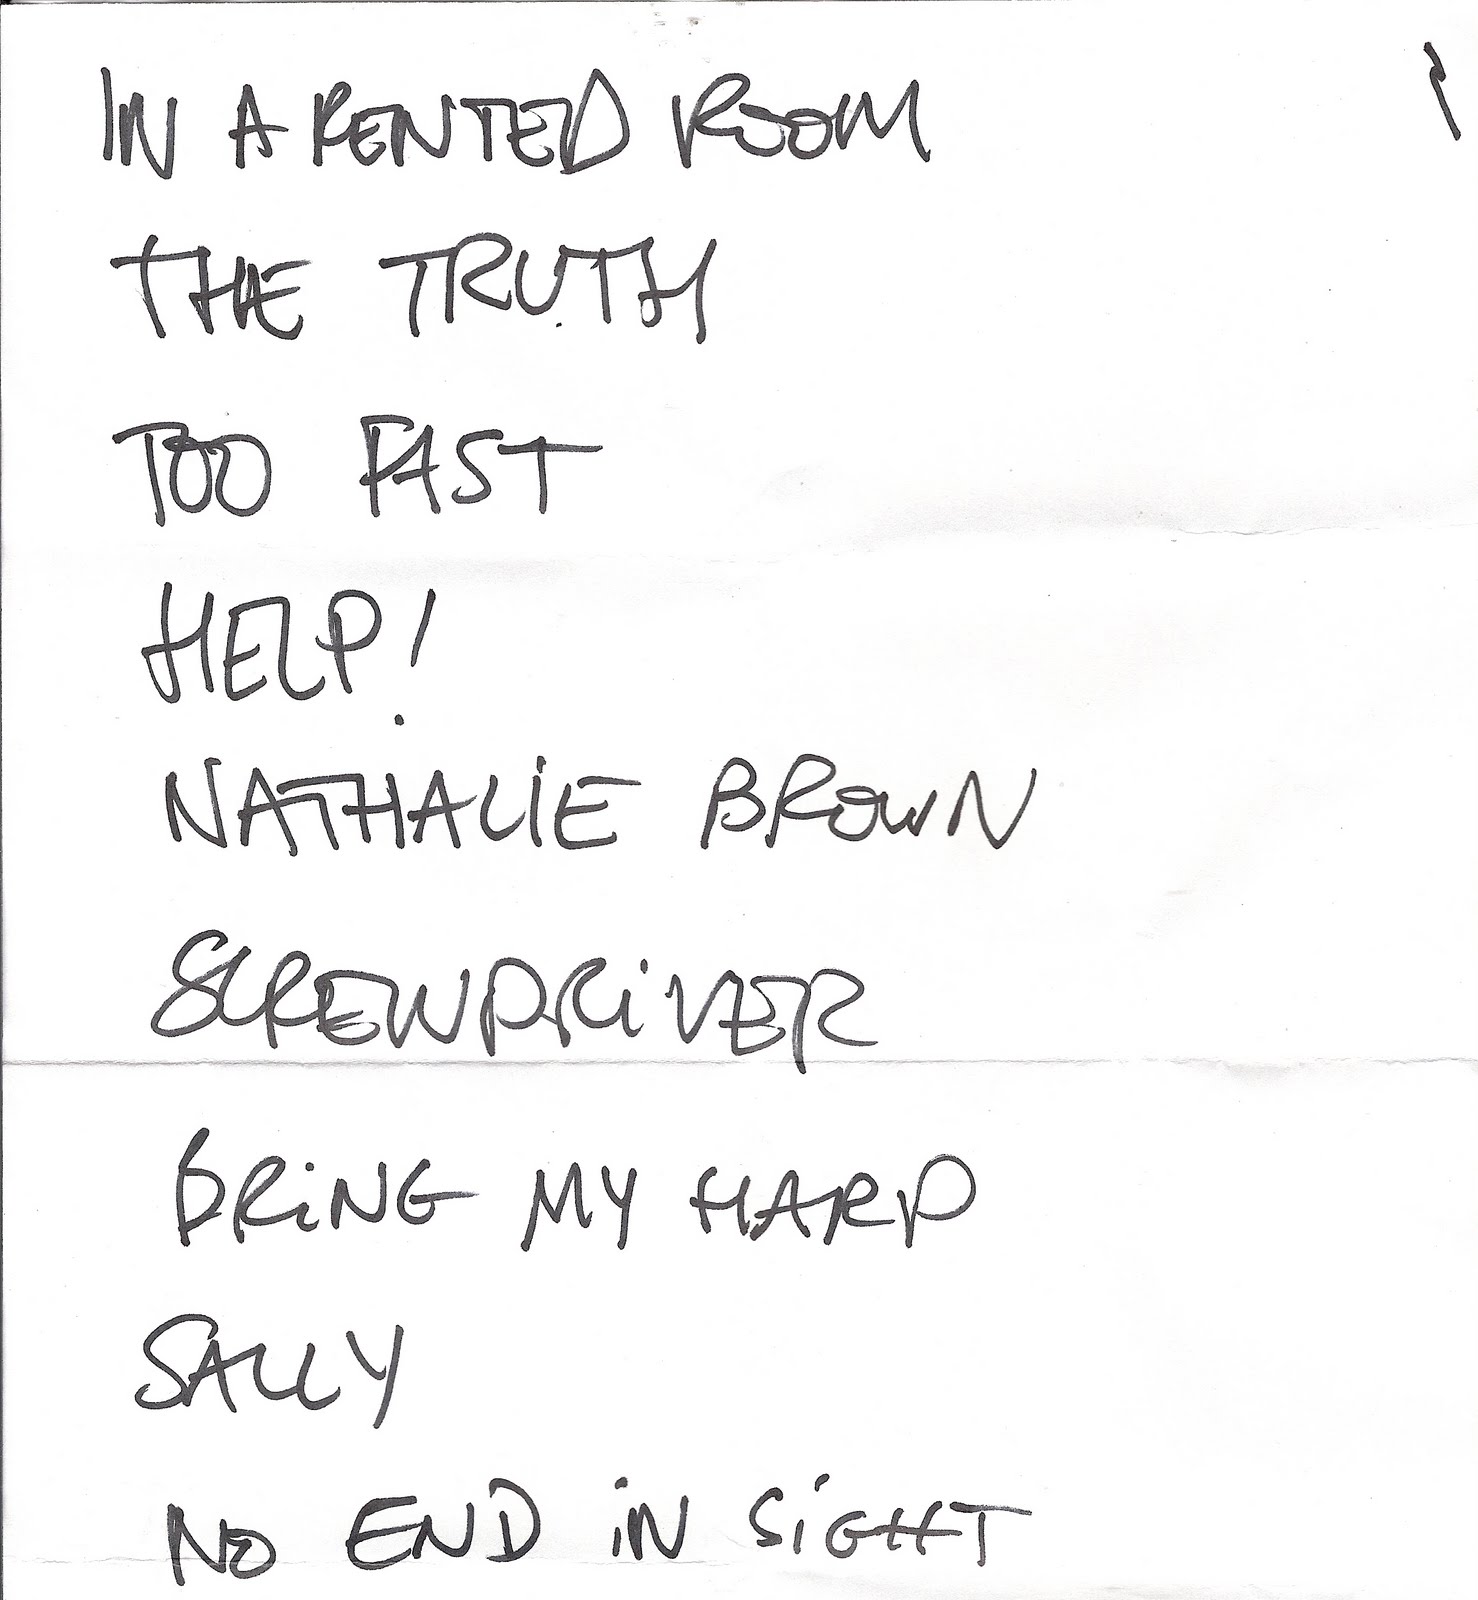 IN A RENTED ROOM
THE TRUTH
TOO FAST
HELP!
NATHALIE BROWN
SCREWDRIVER
BRING MY HARP
SALLY
NO END IN SIGHT